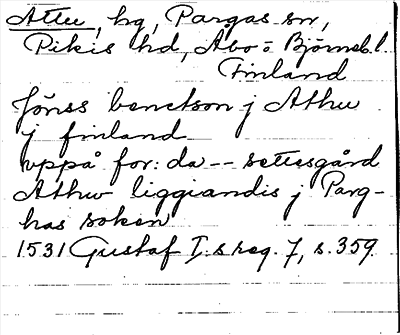 Attu, hg, Pargas sn,
Pikis hd, Åbo o Björneb. l.
Finland
Jönss benctson j Athu
j finland
vppå for:da -- settesgård
Athu liggiandis j Parg-
has soken
1531 Gustaf I:s reg. 7, s. 359.